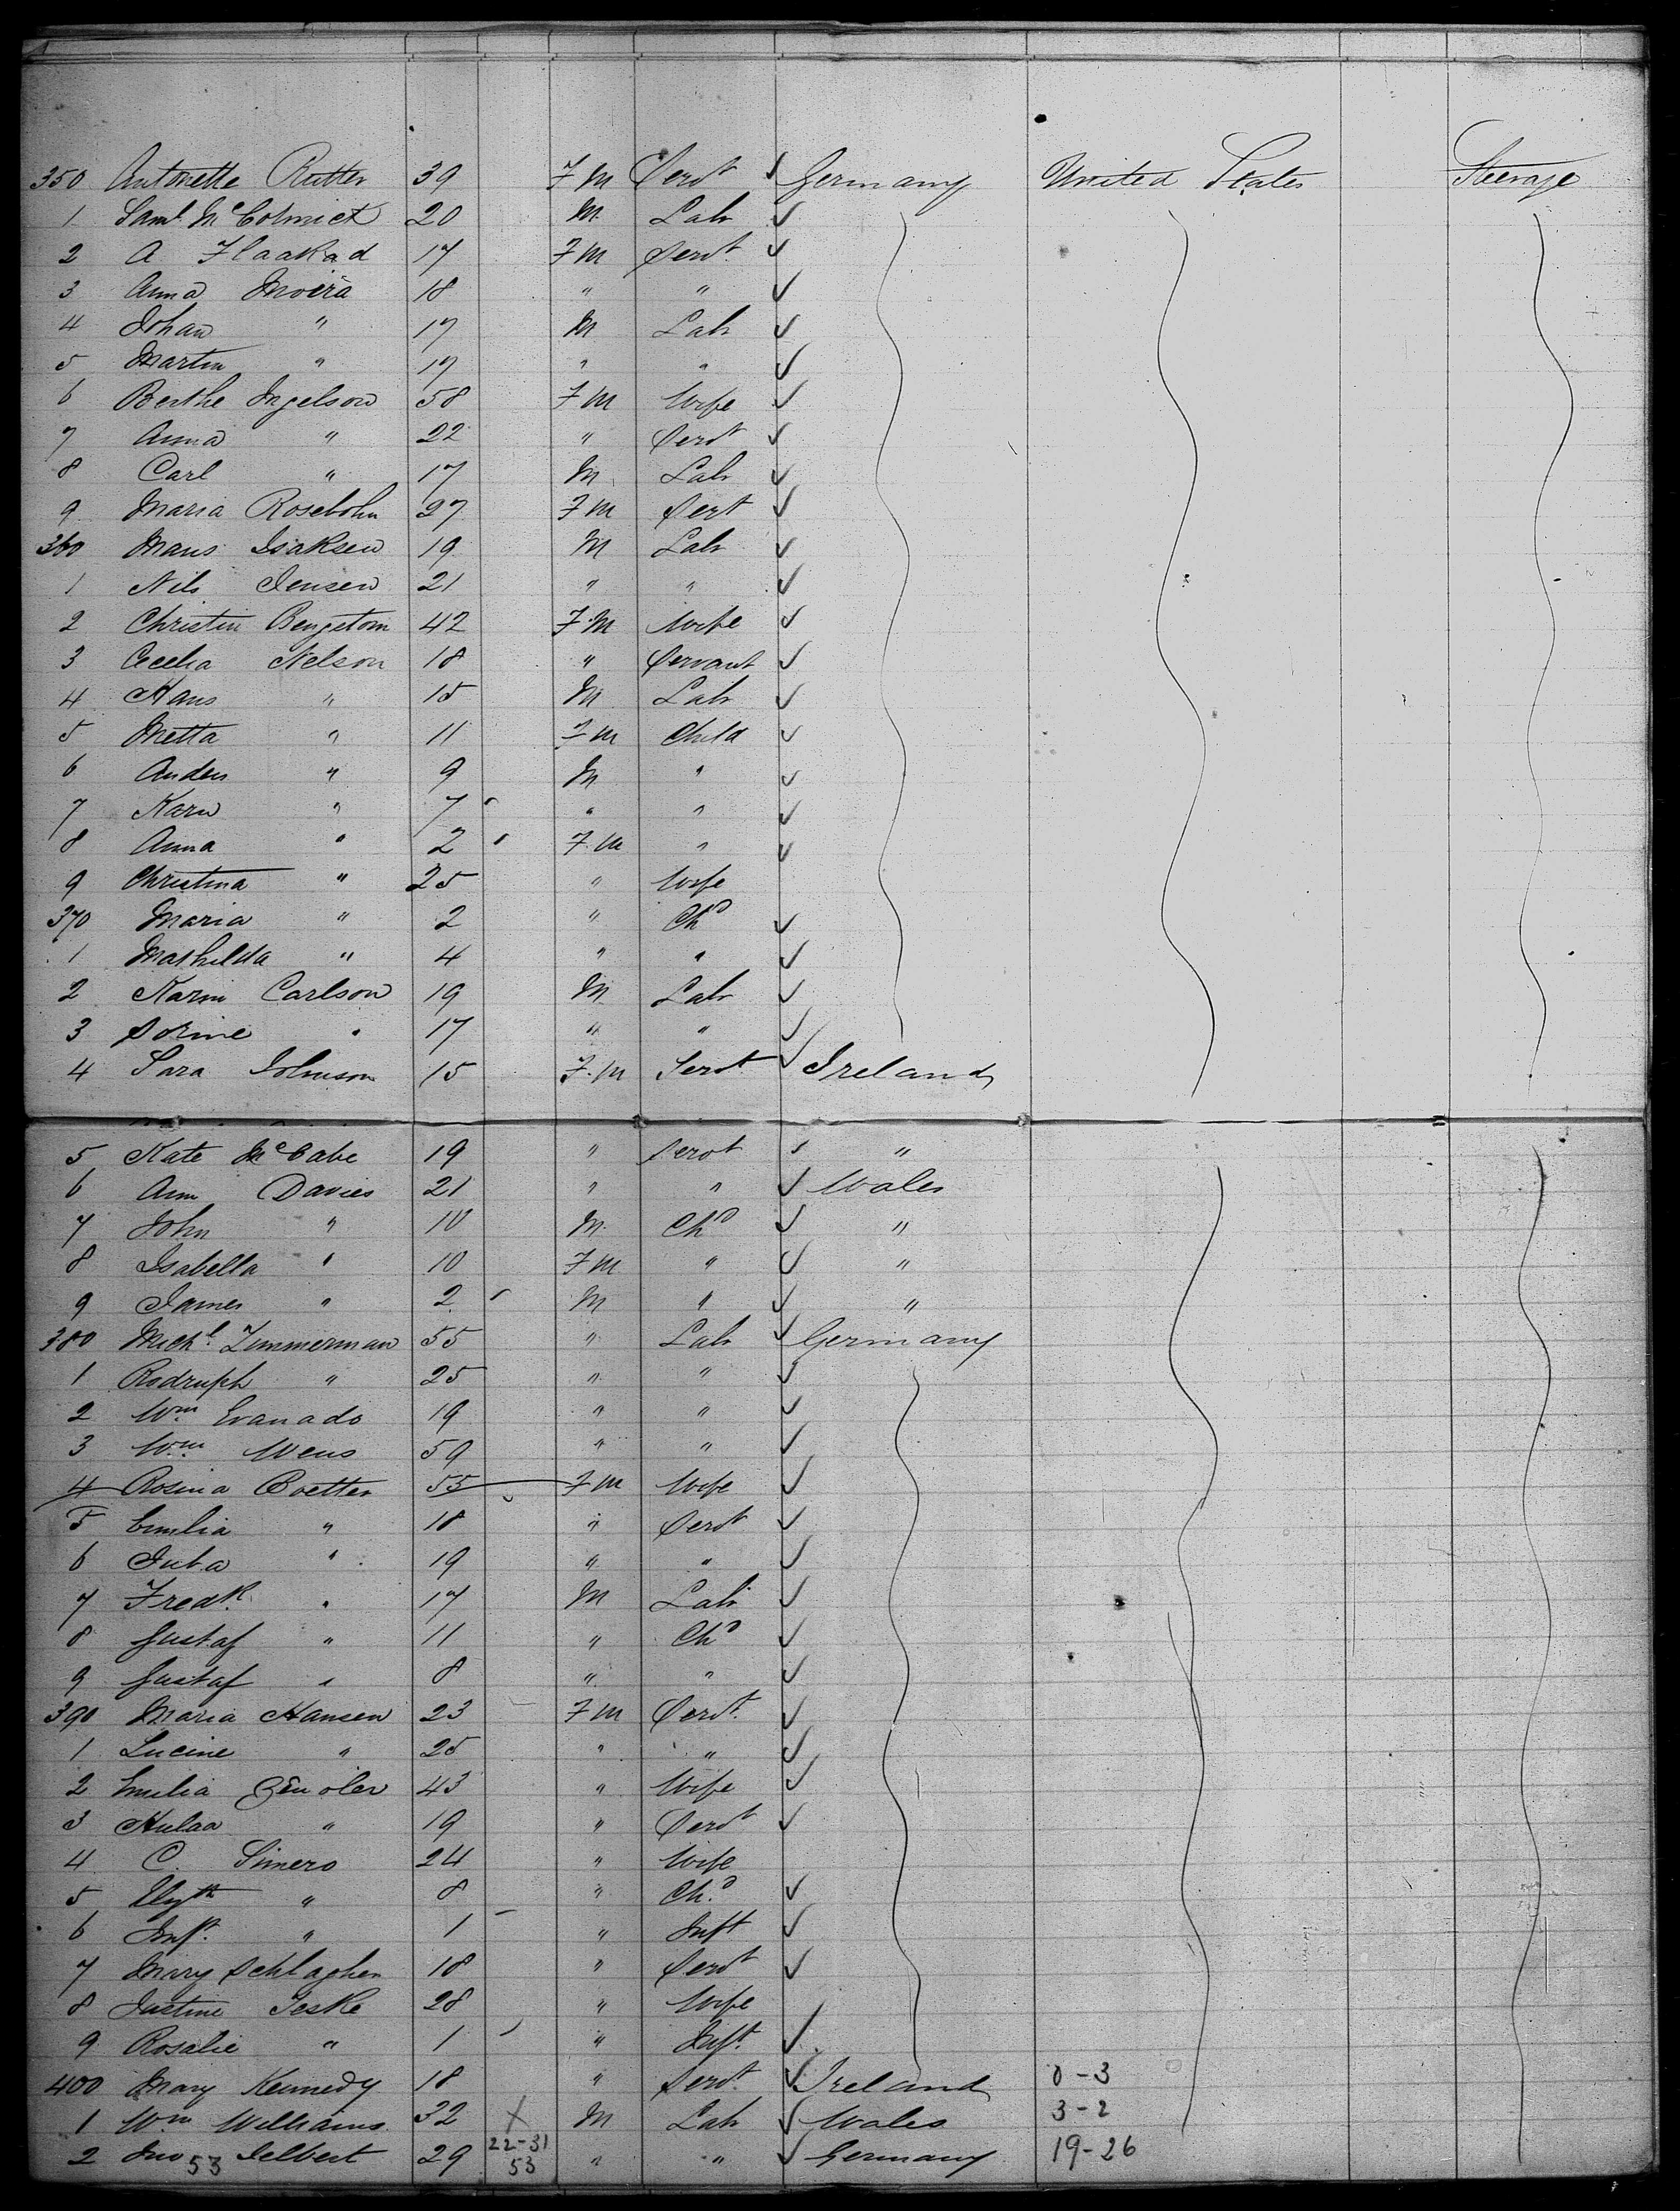 350 Antonette Rutter 39 Fm Servt ✓ Germany United States Steerage
1 Saml McColmick 20 M Labr ✓
2 A Flaakad 17 Fm Servt ✓
3 Anna Moira 18 " " ✓
4 Johan " 17 M Labr ✓
5 Martin " 17 " " ✓
6 Berthe Ingelson 58 Fm Wife ✓
7 Anna " 22 " Servt ✓
8 Carl " 17 M Labr ✓
9 Maria Rosebohn 27 Fm Servt ✓
360 Mans Isaksen 19 M Labr ✓
1 Nils Jensen 21 " " ✓
2 Christin Bengstom 42 Fm Wife ✓
3 Cecelia Nelson 18 " Servant ✓
4 Hans " 15 M Labr ✓
5 Metta " 11 Fm Child ✓
6 Anders " 9 M " ✓
7 Karn " 7 " " ✓
8 Anna " 2 Fm " ✓
9 Christina " 25 " Wife
370 Maria " 2 " Chd ✓
1 Mathilda " 4 " " ✓
2 Karin Carlson 19 M Labr ✓
3 Sorine " 17 " " ✓
4 Sara Johnson 15 Fm Servt ✓ Ireland
5 Kate McCabe 19 " Servt ✓ "
6 Ann Davies 21 " " ✓ Wales
7 John " 10 M Chd ✓ "
8 Isabella " 10 Fm " ✓ "
9 James " 2 M " ✓ "
380 Michl Zimmerman 55 " Labr ✓ Germany
1 Rodruph " 25 " " ✓
2 Wm Evanado 19 " " ✓
3 Wm Wens 59 " " ✓
4 Rosina Coetter 55 Fm Wife ✓
5 Emilia " 18 " Servt ✓
6 Juta " 19 " " ✓
7 Fredk " 17 M Labr ✓
8 Gustaf " 11 " Chd ✓
9 Gustaf " 8 " " ✓
390 Maria Hansen 23 Fm Servt ✓
1 Lucine " 25 " " ✓
2 Emilia 43 " Wife ✓
3 Hulaa " 19 " Servt ✓
4 C. Simero 24 " Wife
5 " 8 " Chd ✓
6 Inft " 1 " Inft ✓
7 Mary Schlaghen 18 " Servt ✓
8 Justine Jeske 28 " Wife
9 Rosalie " 1 " Inft ✓
400 Mary Kennedy 18 " Servt ✓ Ireland 0-3
1 Wm Williams 32 X M Labr ✓ Wales 3-2
2 Jno Ilbert 29 22-31 " " ✓ Germany 19-26
53 53